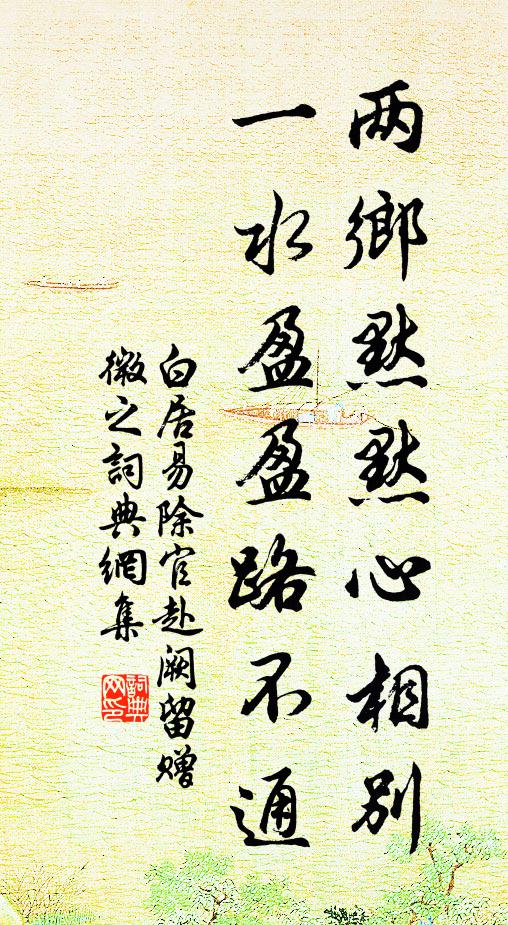 两鄉黙黙心相别
一水盈盈路不通
白居易除官赴阙留赠
微之詞典網集
詞典网印